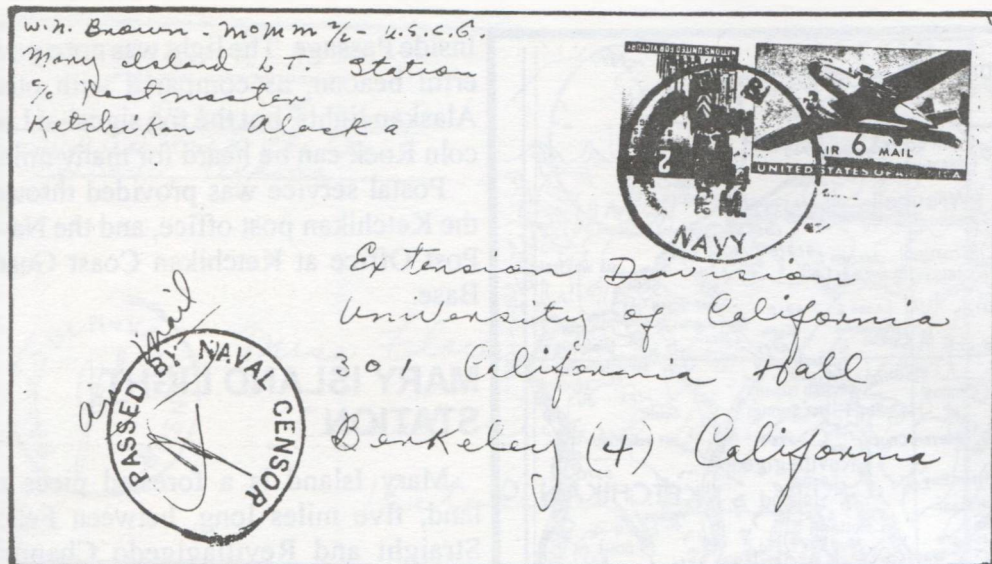 W.N. Brown - MoMM 2/c - U.S.C.G.
Mary Island L.T. Station
c/o
Ketchikan Alaska
UNITED STATES OF AMERICA
AIR 6¢ MAIL
UNITED STATES OF AMERICA
NAVY
Extension Division
University of California
301 California Hall
Berkeley (4) California
Air Mail
PASSED BY NAVAL CENSOR